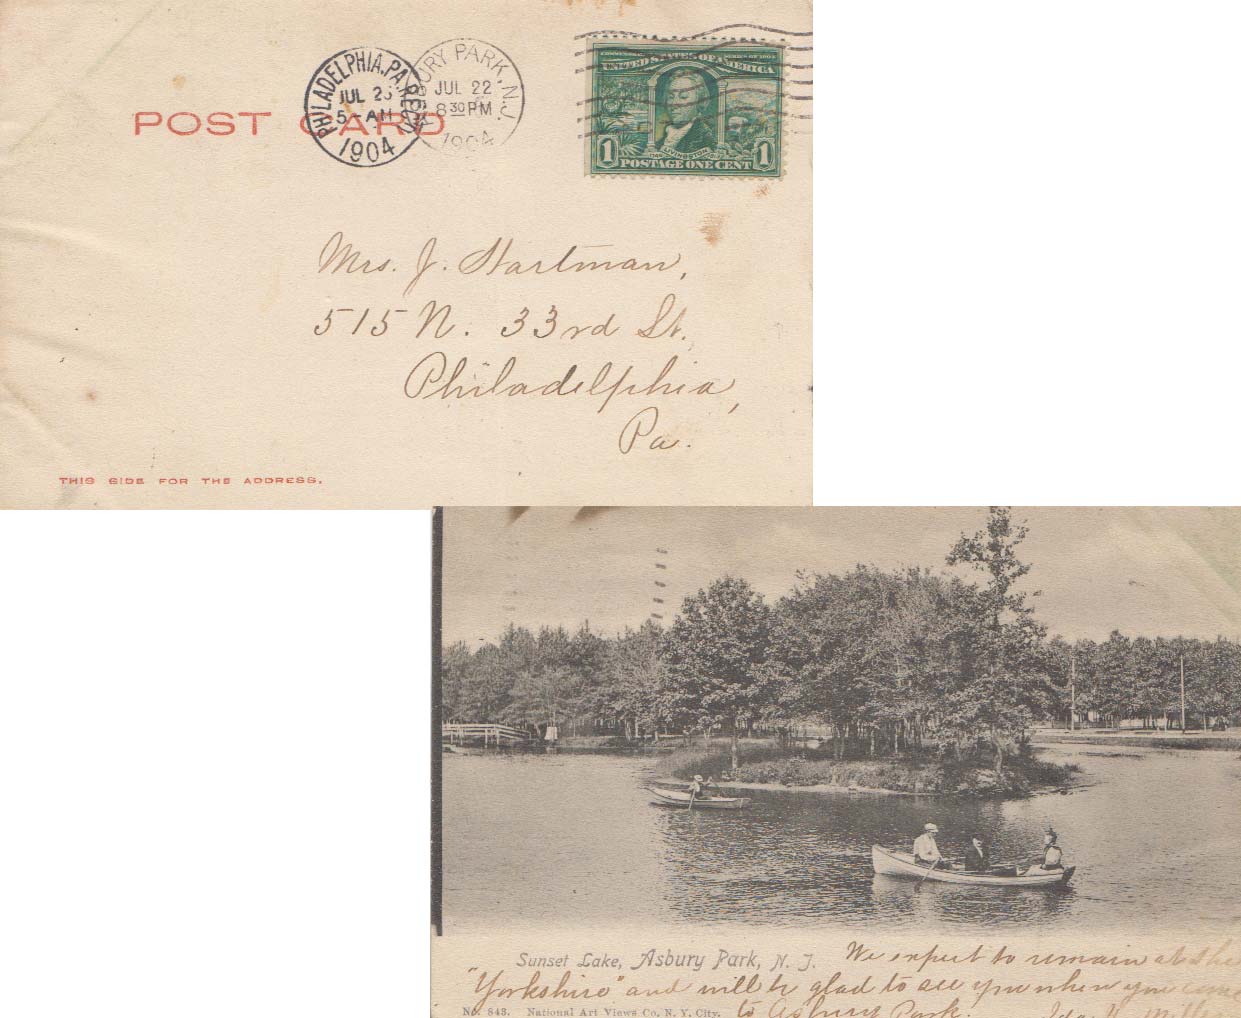 POST CARD
PHILADELPHIA, PA. REC'D
JUL 23
5-AM
1904
ASBURY PARK, N.J.
JUL 22
8 30 PM
1904
UNITED STATES OF AMERICA
1 POSTAGE ONE CENT 1
Mrs. J. Hartman,
515 N. 33rd St.
Philadelphia,
Pa.
THIS SIDE FOR THE ADDRESS.
Sunset Lake, Asbury Park, N. J.
We expect to remain at the
"Yorkshire" and will be glad to see you when you come
to Asbury Park.
No. 843. National Art Views Co. N. Y. City.